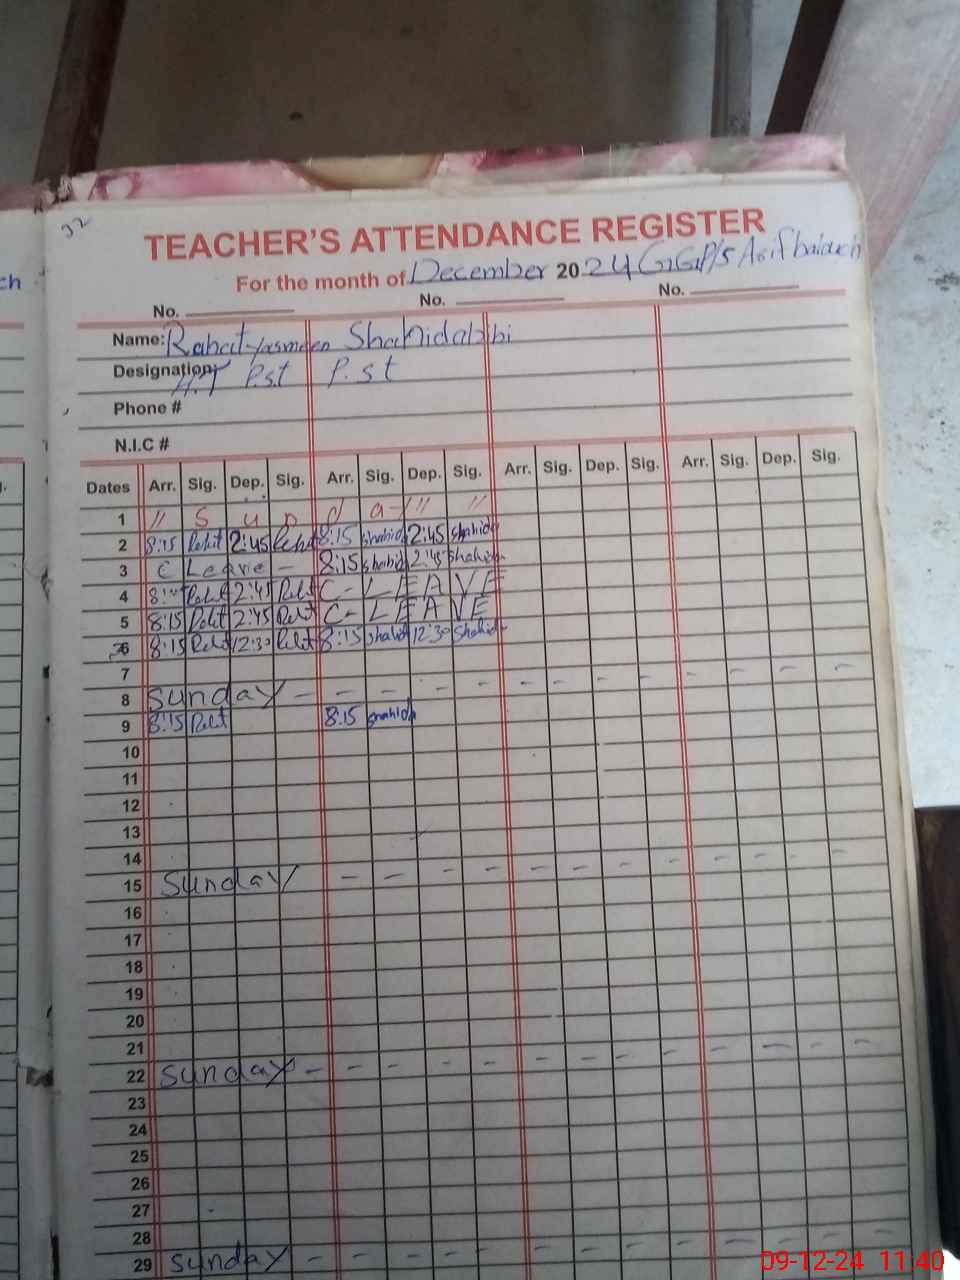 32
TEACHER'S ATTENDANCE REGISTER
For the month of December 2024 G.G.P/S Asif baloch
ch
No. No. No.
Name: Rahat Yasmeen Shahida bibi
Designation: H.T P.st P.st
Phone #
N.I.C #
Dates Arr. Sig. Dep. Sig. Arr. Sig. Dep. Sig. Arr. Sig. Dep. Sig. Arr. Sig. Dep. Sig.
1 // S u n d a y // //
2 8:15 2:45 8:15 Shahida 2:45 Shahida
3 C Leave - 8:15 Shahida 2:45 Shahida
4 2:45 C- LEAVE
5 8:15 2:45 C- LEAVE
6 8:15 12:30 8:15 Shahida 12:30 Shahida
7
8 Sunday - - - - - - - - - - - - -
9 8:15 8:15 Shahida
10
11
12
13
14
15 Sunday - - - - - - - - - - - -
16
17
18
19
20
21
22 Sunday - - - - - - - - - - - - -
23
24
25
26
27
28
29 Sunday - - - - - - - - - - - - -
09-12-24 11:40